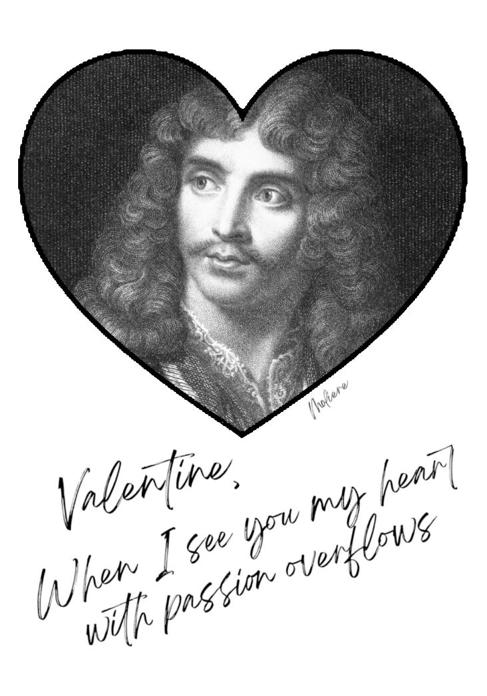 Moliere
Valentine,
When I see you my heart
with passion overflows